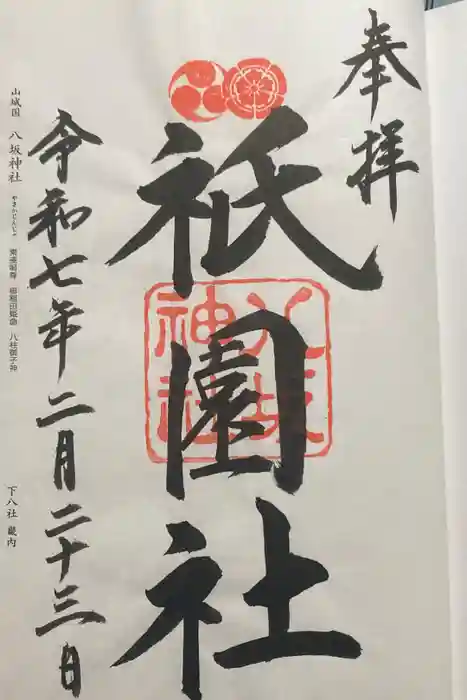 奉拝
祇園社
八坂神社
令和七年二月二十三日
山城国 八坂神社 やさかじんじゃ 素戔嗚尊 櫛稲田姫命 八柱御子神
下八社 畿内